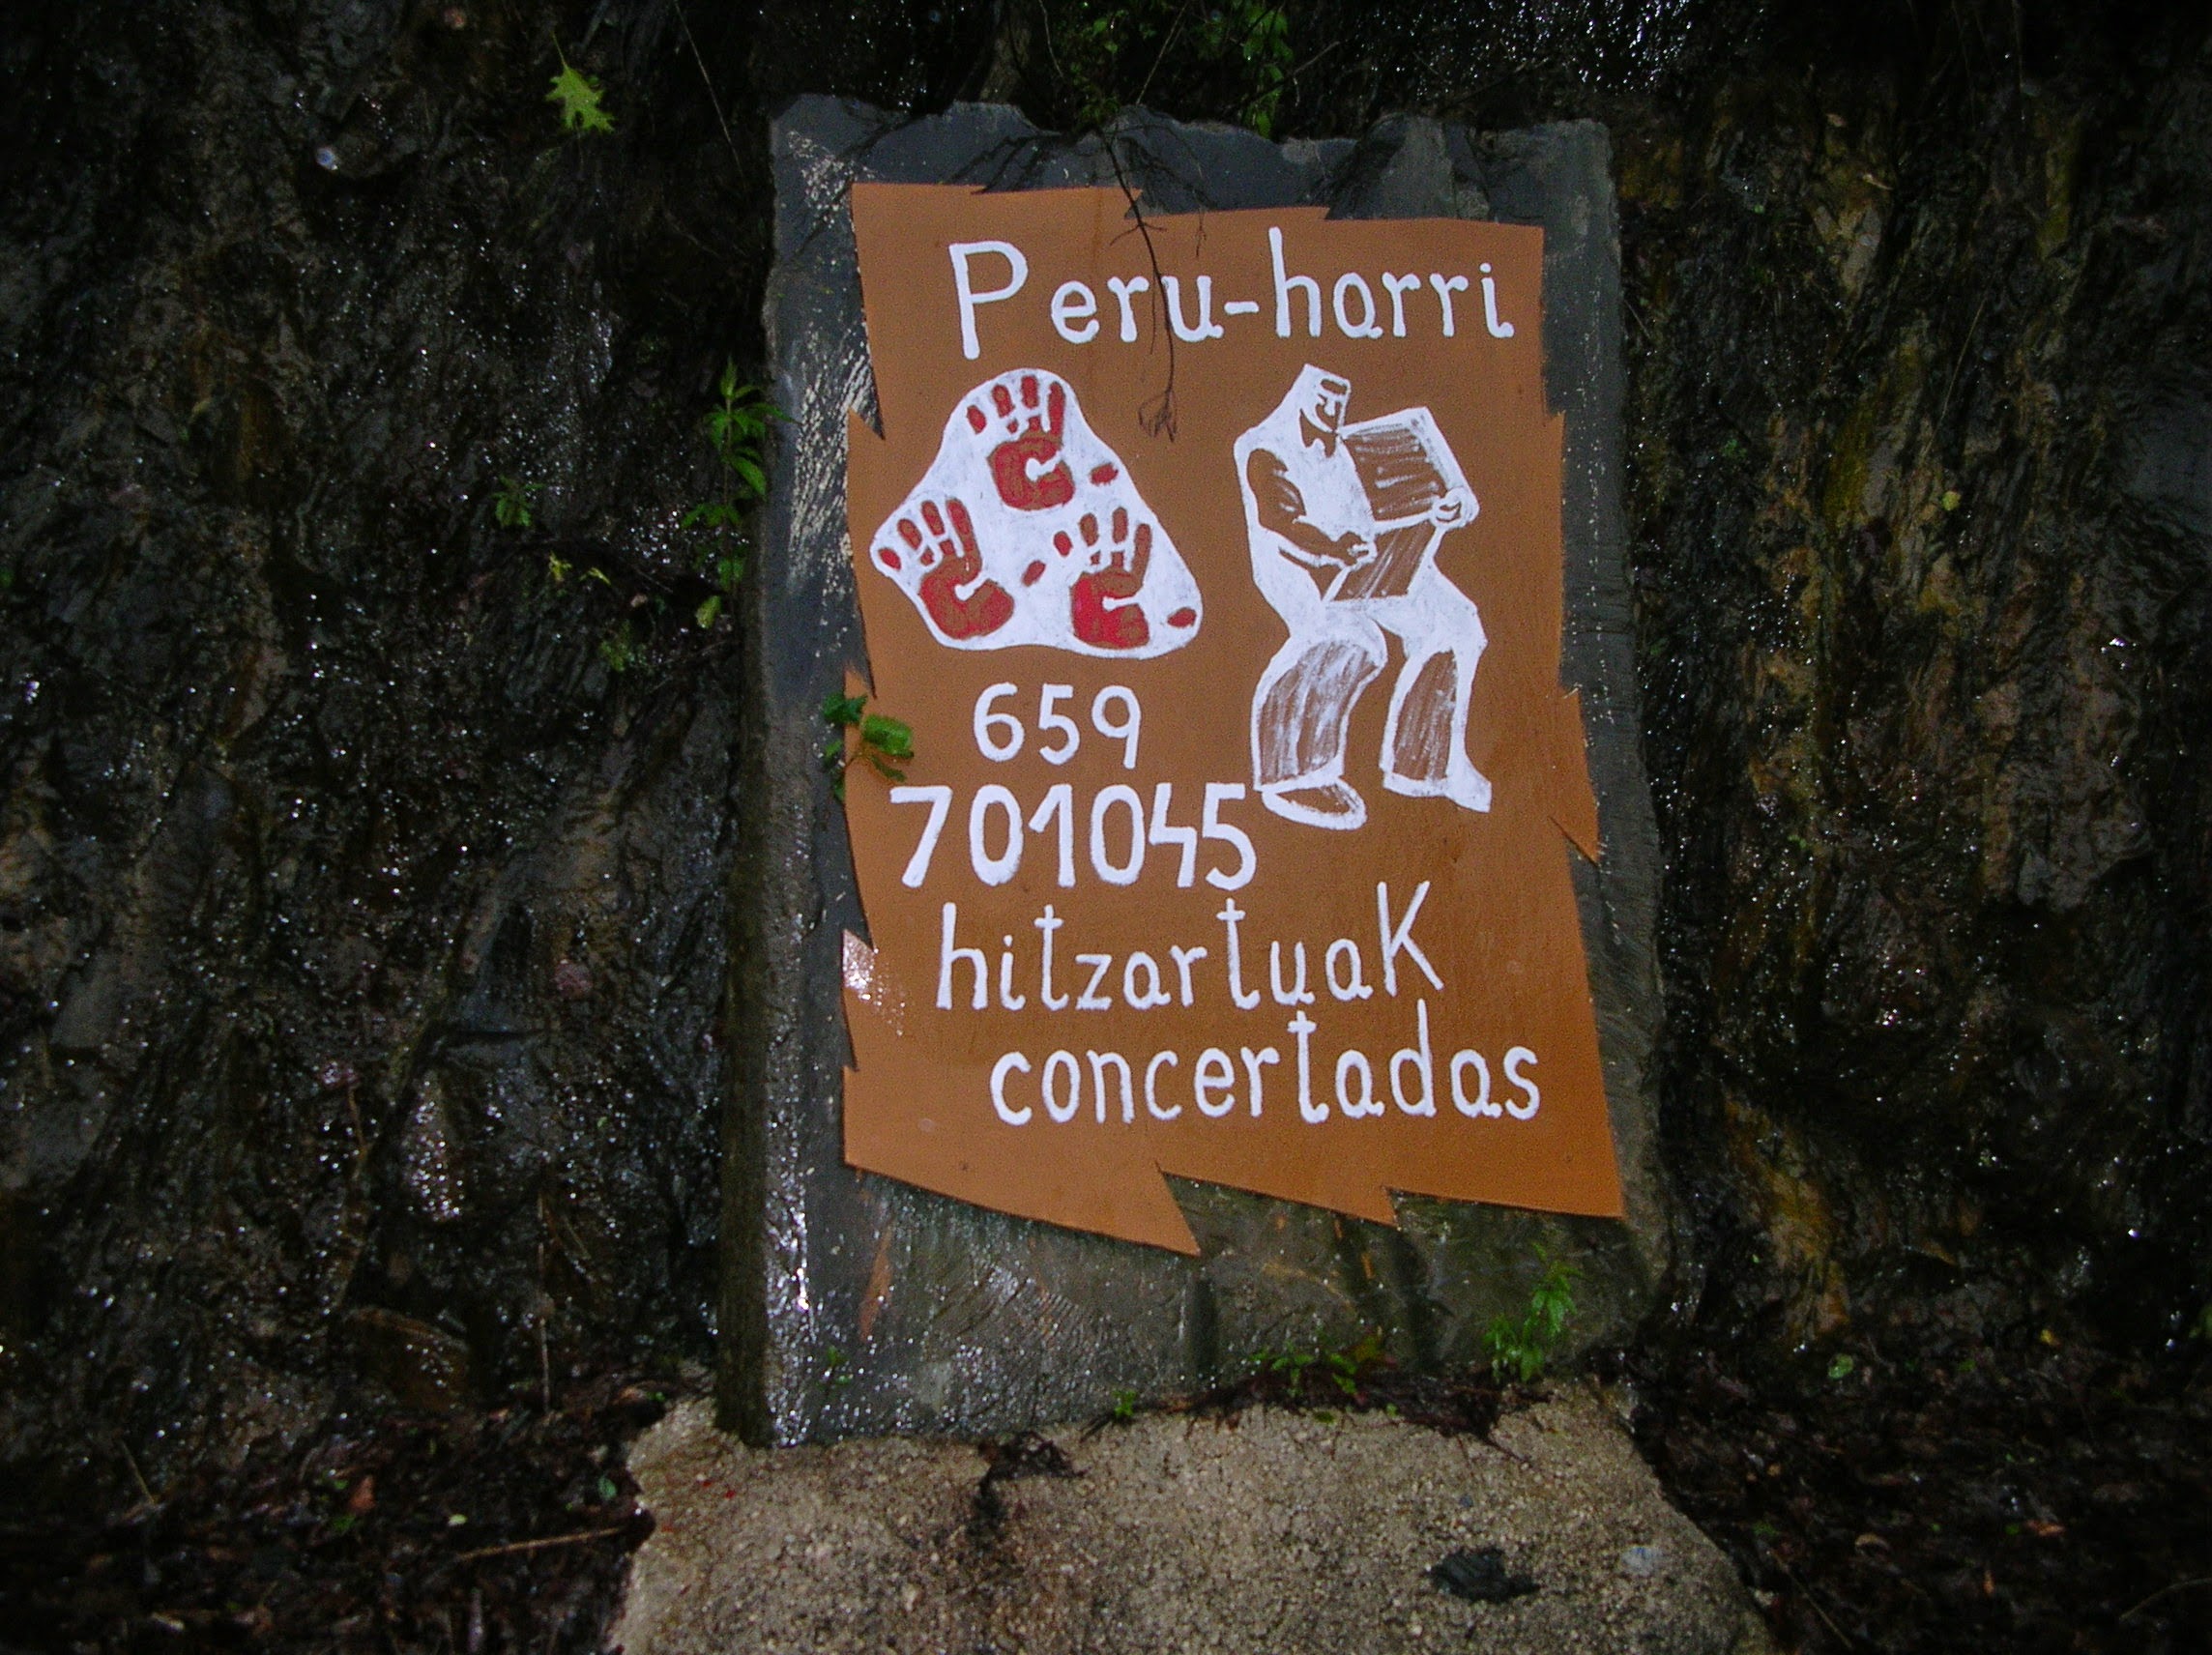 Peru-harri
659
701045
hitzartuaK
concertadas